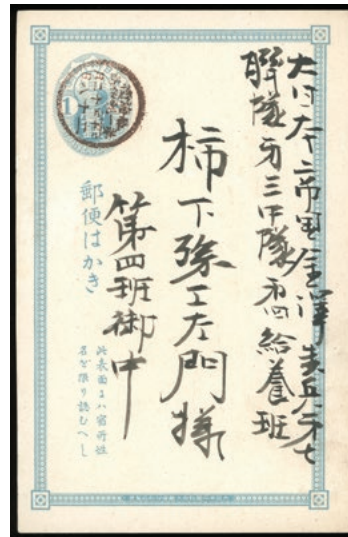 大日本帝国金澤歩兵第七
聯隊第三中隊第四給養班
柿下孫工左門様
第四班御中
郵便はかき
此表面ニハ宿所姓
名を限り認むへし